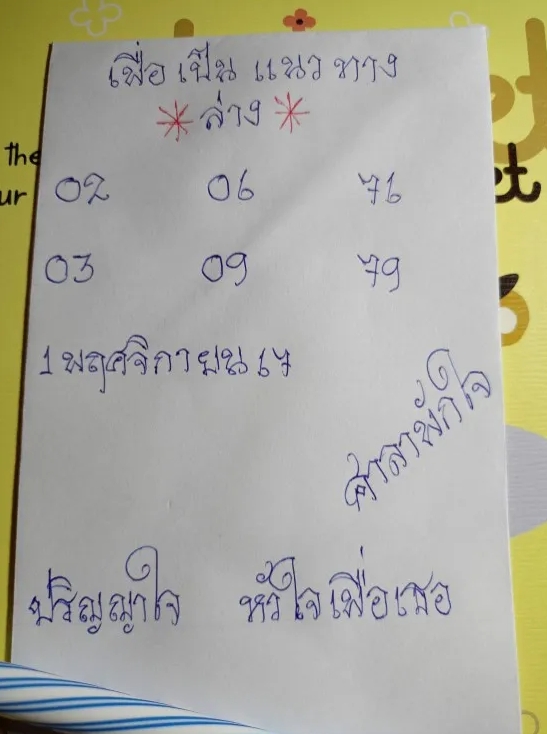 เพื่อ เป็น แนว ทาง
* ล่าง *
the
ur
et
02 06 76
03 09 79
1 พฤศจิกายน 17
ศาลาพักใจ
ปริญญาใจ หัวใจเพื่อเธอ